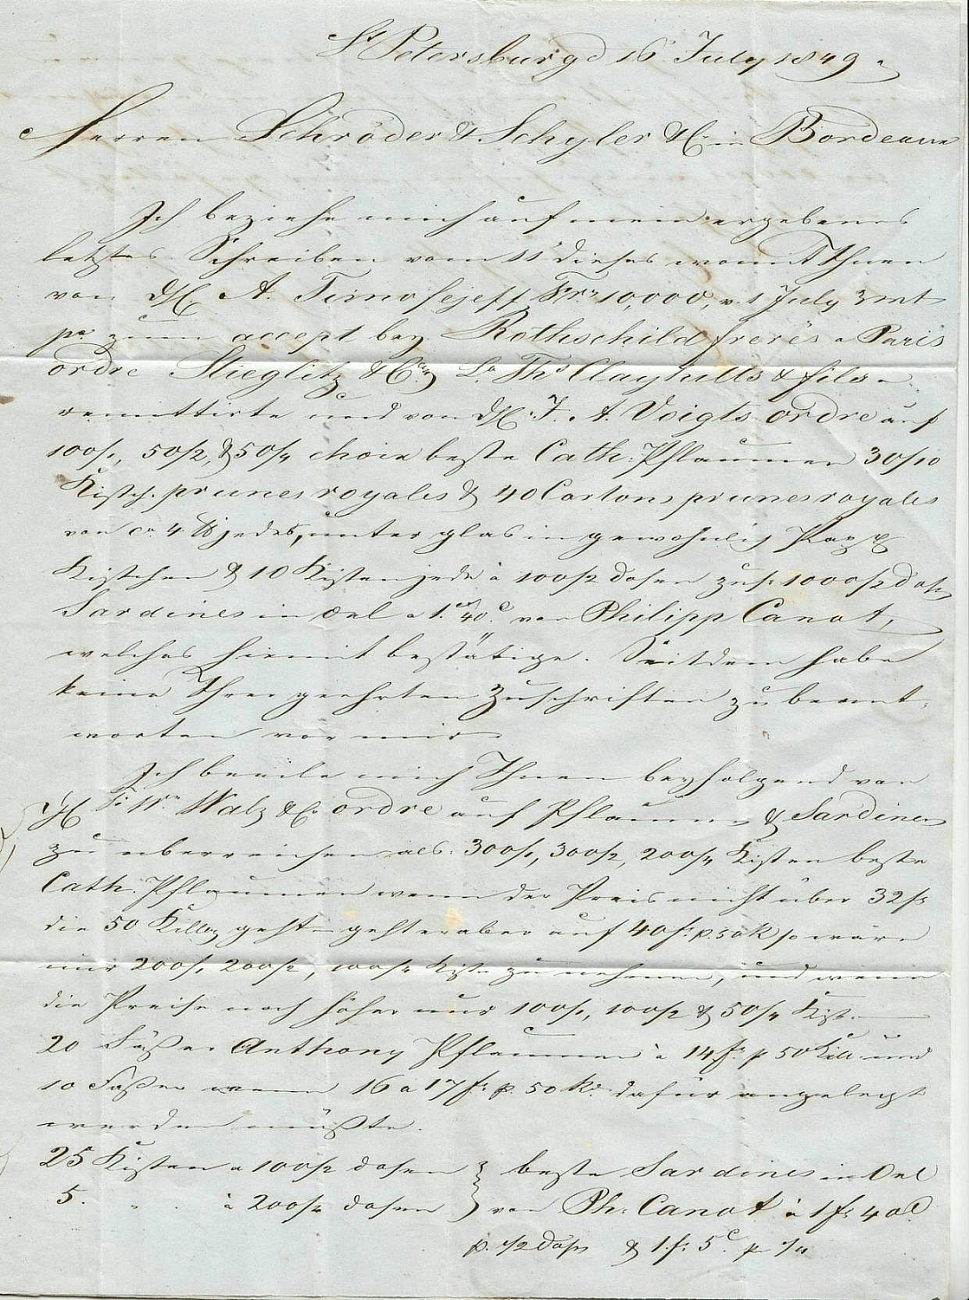 St Petersburg d 16 July 1849
Herren Schröder & Schyler & Co in Bordeaux
Ich beziehe mich auf mein ergebenes
letztes Schreiben vom 11 dieses womit Ihnen
von A. Timofejeff Frs 10,000, v. 1 July 3 mt
pr zum accept bey Rothschild freres a Paris
ordre Stieglitz & Co Ths Clayhills & fils
remittirte und von J. A. Voigts ordre auf
100/1, 50/2, & 50/4 choix beste Cath: Pflaumen 30/10
Kistch. prunes royales & 40 Cartons prunes royales
von ca 4 ℔ jedes, unter glas in
Kistchen & 10 Kisten jede à 100/2 dosen 1000/2 Dosen
Sardines in Oel a 1. 40 c. von Philipp Canot,
welches hiermit bestätige. Seitdem habe
keine Ihrer geehrten Zuschriften zu beant
worten vor mir
Ich beeile mich Ihnen beyfolgend von
Walz & Co ordre auf Pflaumen & Sardines
zu überreichen als: 300/1, 300/2, 200/4 Kisten beste
Cath. Pflaumen wenn der Preis nicht über 32 fr
die 50 Killog geht aber auf 40 fr. p 50 K so wäre
nur 200/1 200/2, 100/4 Kist. zu nehmen, und wenn
die Preise noch höher nur 100/1, 100/2 & 50/4 Kist
20 Fäßer Anthony Pflaumen à 14 fr. p 50 Kill und
10 Fäßer wenn 16 a 17 fr. p. 50 Ko dafür angelegt
werden müßte.
25 Kisten a 100/2 dosen } beste Sardines in Oel
5. " " à 200/4 dosen } von Ph: Canot à 1 fr 40 c
p. 1/2 Dosen & 1 fr. 5 c p 1/4